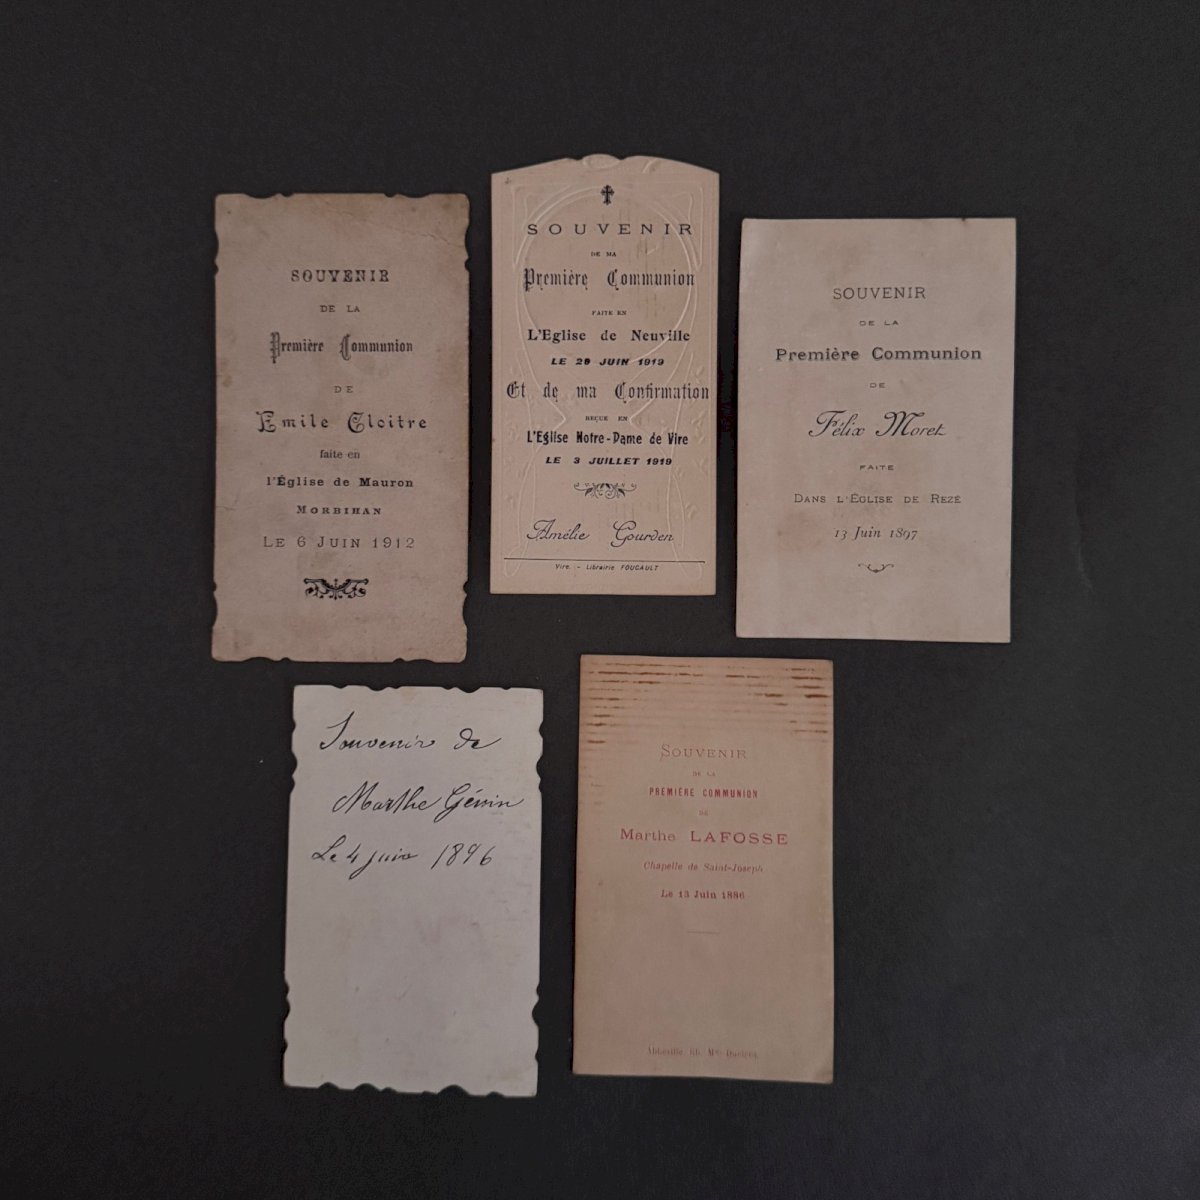 SOUVENIR
DE LA
Première Communion
DE
Emile Cloitre
faite en
l'Église de Mauron
MORBIHAN
LE 6 JUIN 1912
SOUVENIR
DE MA
Première Communion
FAITE EN
L'Eglise de Neuville
LE 28 JUIN 1919
Et de ma Confirmation
REÇUE EN
L'Eglise Notre-Dame de Vire
LE 3 JUILLET 1919
Amélie Gourden
Vire. - Librairie FOUCAULT
SOUVENIR
DE LA
Première Communion
DE
Félix Moret
FAITE
DANS L'ÉGLISE DE REZÉ
13 Juin 1897
Souvenir de
Marthe
Le 4 juin 1896
SOUVENIR
DE LA
PREMIÈRE COMMUNION
DE
Marthe LAFOSSE
Chapelle de Saint-Joseph
Le 13 Juin 1886
Abbeville